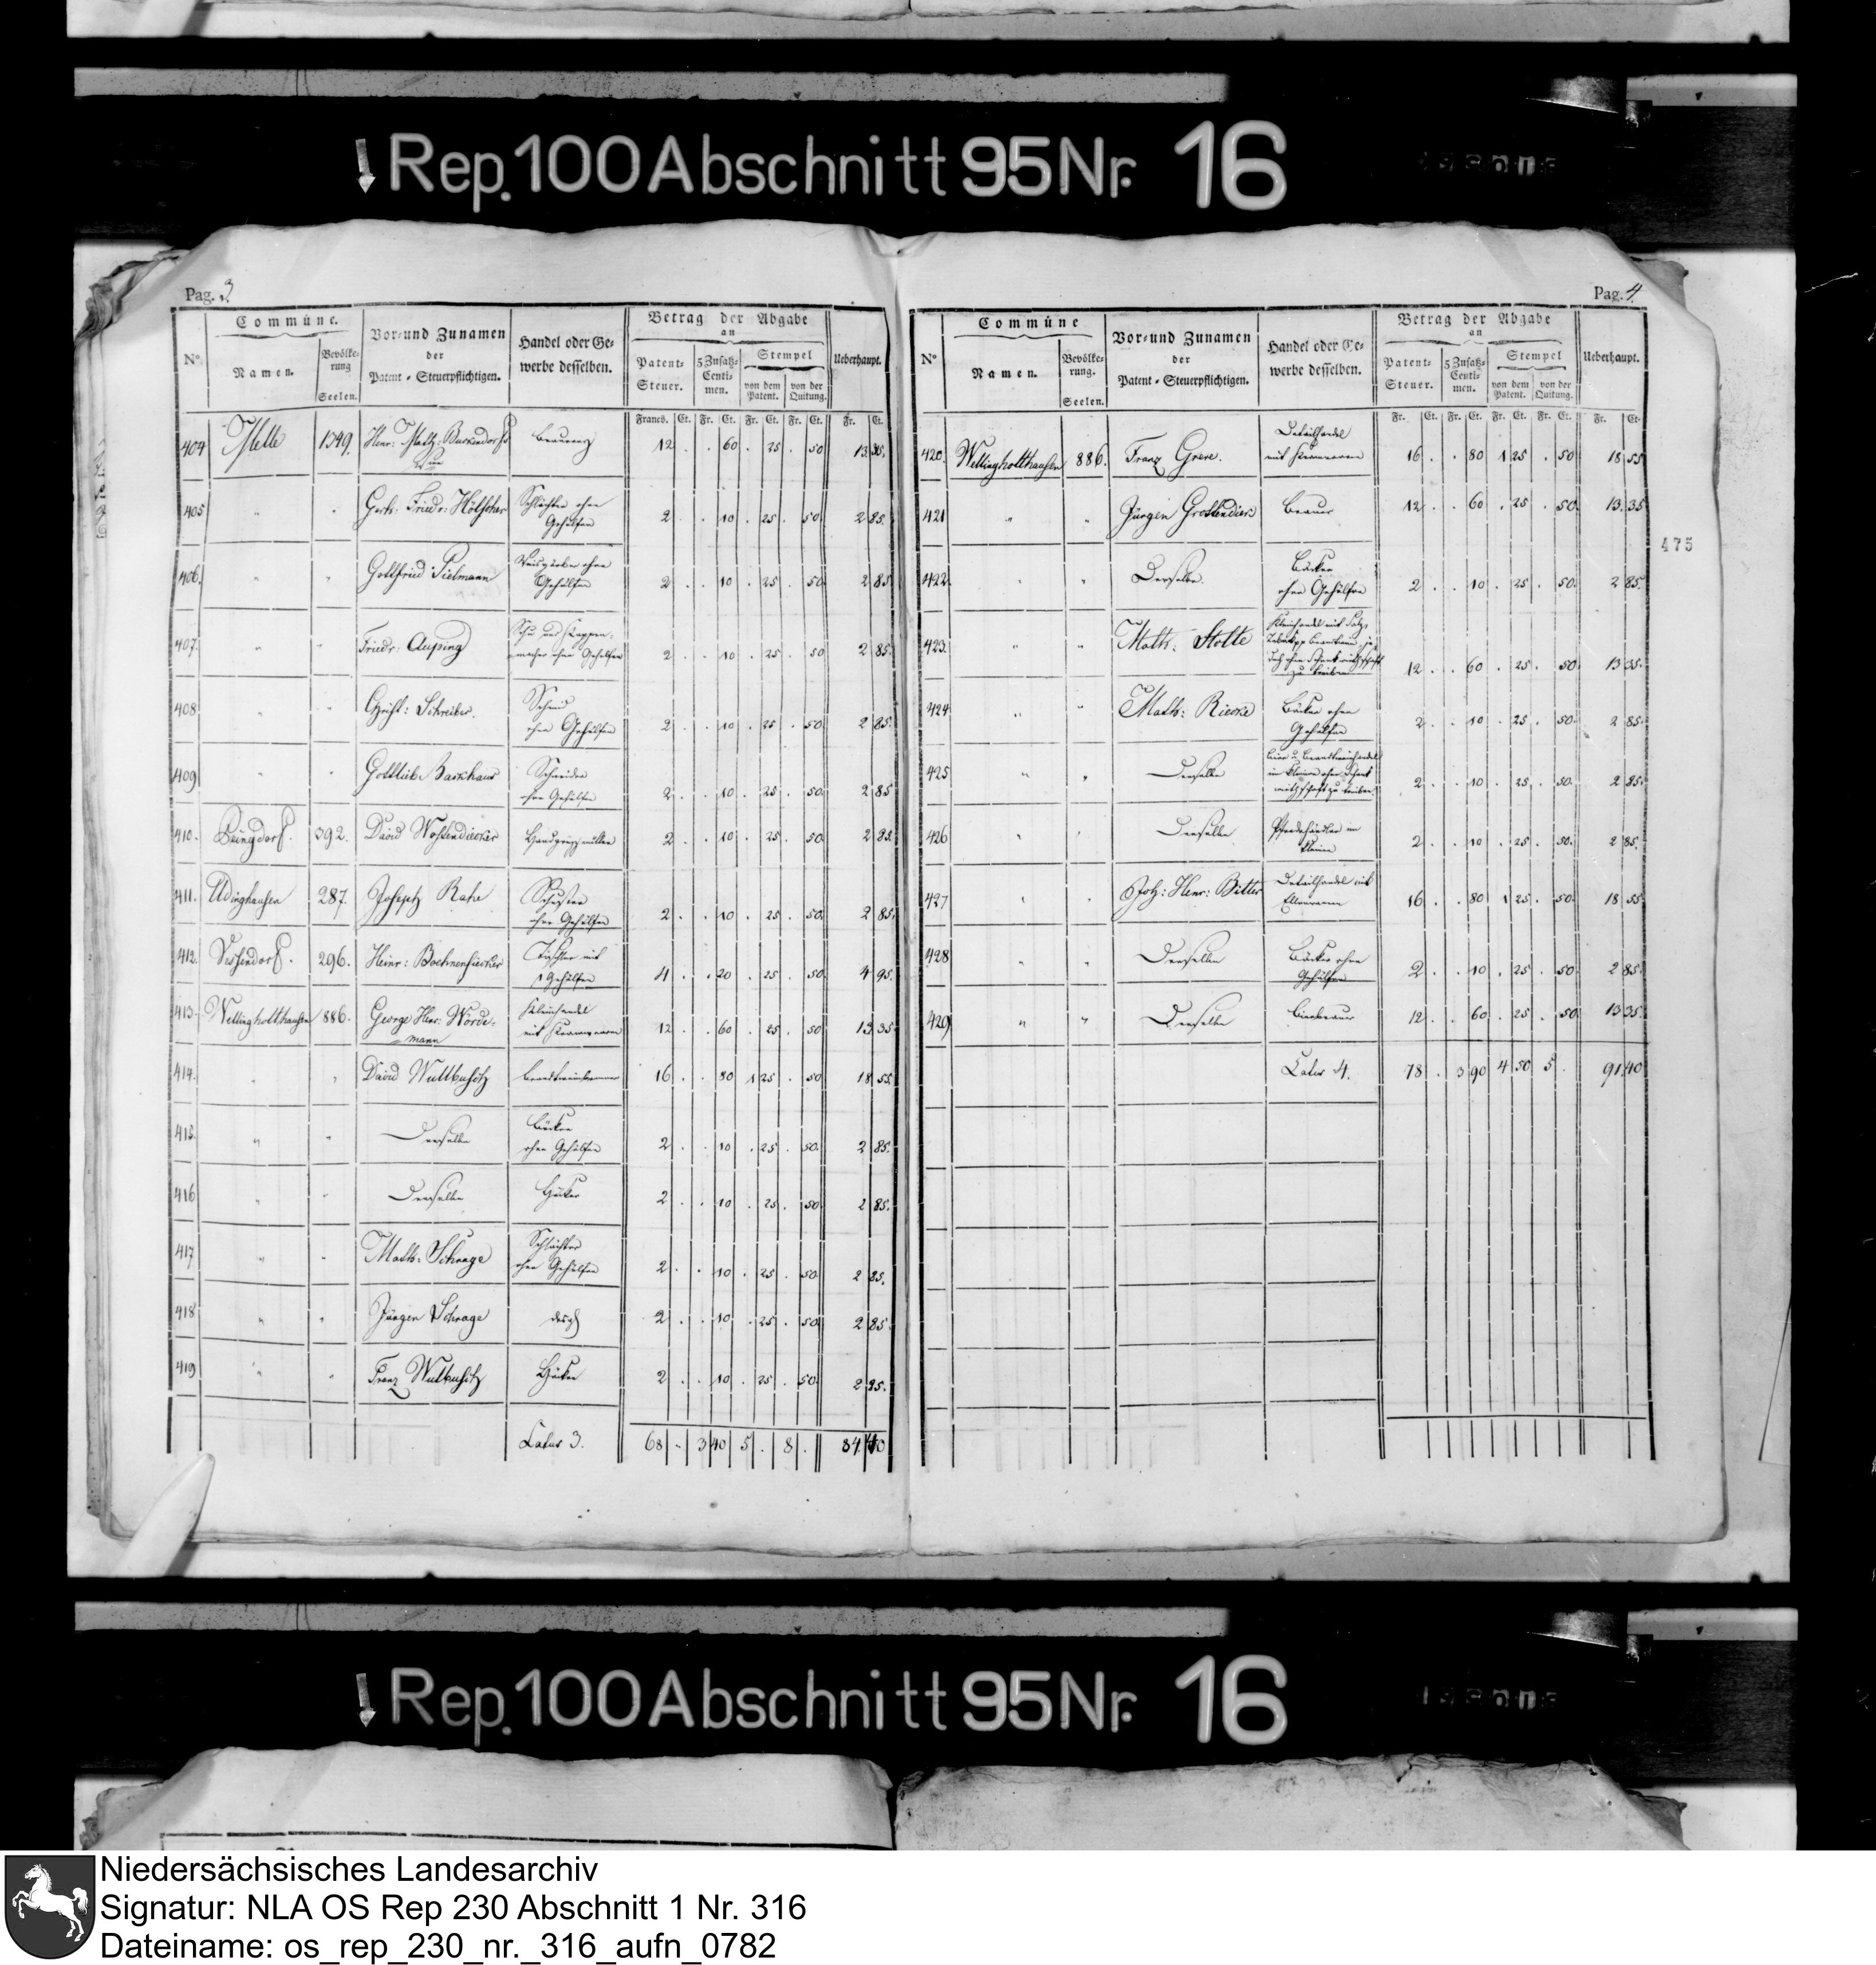 Rep. 100 Abschnitt 95 Nr. 16
Pag. 3.
N°.
Commüne.
Namen.
Bevölke-
rung
Seelen.
Vor- und Zunamen
der
Patent-Steuerpflichtigen.
Handel oder Ge-
werbe desselben.
Betrag der Abgabe
an
Patent-
Steuer.
5 Zusatz-
Centi-
men.
Stempel
von dem
Patent.
von der
Quitung.
Ueberhaupt.
Francs. Ct. Fr. Ct. Fr. Ct. Fr. Ct. Fr. Ct.
404 Melle 1349. 12 . . 60 . 25 . 50 13 35.
405 " " Gerh: Friedr: Hölscher Schlächter ohne
Gehülfen 2 . . 10 . 25 . 50. 2 85.
406. " " Gottfried Tielmann Weisgerber ohne
Gehülfen 2 . . 10 . 25 . 50. 2 85
407. " " Friedr: Auping Schu und Kappen-
macher ohne Gehülfen 2 . . 10 . 25 . 50 2 85.
408 " " Christ: Schreiber. Schmid
ohne Gehülfen 2 . . 10 . 25 . 50. 2 85.
409 " " Gottlieb Barkhaus Schneider
ohne Gehülfen 2 . . 10 . 25 . 50. 2 85
410. 392. David 2 . . 10 . 25 . 50. 2 85.
411. 287. Joseph Rahe Schuster
ohne Gehülfen 2 . . 10 . 25 . 50. 2 85.
412. 296. Heinr: Tischler mit
1 Gehülfen 4 . . 20 . 25 . 50. 4 95.
413. Wellingholthausen 886. George Henr: Wörde-
mann Kleinhandel
mit Kramwaren 12 . . 60 . 25 . 50 13 35
414. " " David Brandtweinbrenner 16 . . 80 1 25 . 50 18 55.
415. " " Derselbe Bäcker
ohne Gehülfen 2 . . 10 . 25 . 50. 2 85.
416 " " Derselbe Höker 2 . . 10 . 25 . 50 2 85.
417 " " Math: Schrage Schlächter
ohne Gehülfen 2 . . 10 . 25 . 50 2 85.
418 " " Jürgen Schrage desgl 2 . . 10 . 25 . 50. 2 85.
419 " " Franz Höker 2 . . 10 . 25 . 50. 2 85.
Latus 3. 68 . 3 40 5 . 8 . 84 40
Pag. 4.
N°
Commüne
Namen.
Bevölke-
rung.
Seelen.
Vor- und Zunamen
der
Patent-Steuerpflichtigen.
Handel oder Ge-
werbe desselben.
Betrag der Abgabe
an
Patent-
Steuer.
5 Zusatz-
Centi-
men.
Stempel
von dem
Patent.
von der
Quitung.
Ueberhaupt.
Fr. Ct. Fr. Ct. Fr. Ct. Fr. Ct. Fr. Ct.
420. Wellingholthausen 886. Franz Greve. Detailhandel
mit Kramwaren 16 . . 80 1 25 . 50 18 55
421 " " Jürgen Brauer 12 . . 60 . 25 . 50. 13. 35
422. " " Derselbe. Bäcker
ohne Gehülfen 2 . . 10 . 25 . 50. 2 85.
423. " " Math: Stolte Kleinhandel mit Salz,
12 . . 60 . 25 . 50 13 35.
424. " " Math: Riecke Bäcker ohne
Gehülfen 2 . . 10 . 25 . 50. 2 85.
425 " " Derselbe 2 . . 10 . 25. . 50. 2 85.
426 " " Derselbe Pferdehändler im
kleinen 2 . . 10 . 25 . 50. 2 85.
427 " " Joh: Henr: Bitter Detailhandel mit
Ellenwaaren 16 . . 80 1 25 . 50. 18 55
428 " " Derselbe Bäcker ohne
Gehülfen 2 . . 10 . 25 . 50. 2 85.
429 " " Derselbe Bierbrauer 12 . . 60 . 25 . 50. 13 35.
Latus 4. 78 . 3 90 4 50 5 . 91 40
475
Rep. 100 Abschnitt 95 Nr. 16
Niedersächsisches Landesarchiv
Signatur: NLA OS Rep 230 Abschnitt 1 Nr. 316
Dateiname: os_rep_230_nr._316_aufn_0782